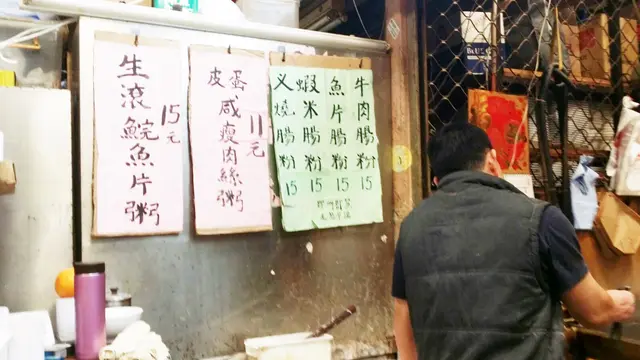 生滾鯇魚片粥
15元
皮蛋
咸瘦肉絲粥
11元
牛肉腸粉 15
魚片腸粉 15
蝦米腸粉 15
义燒腸粉 15